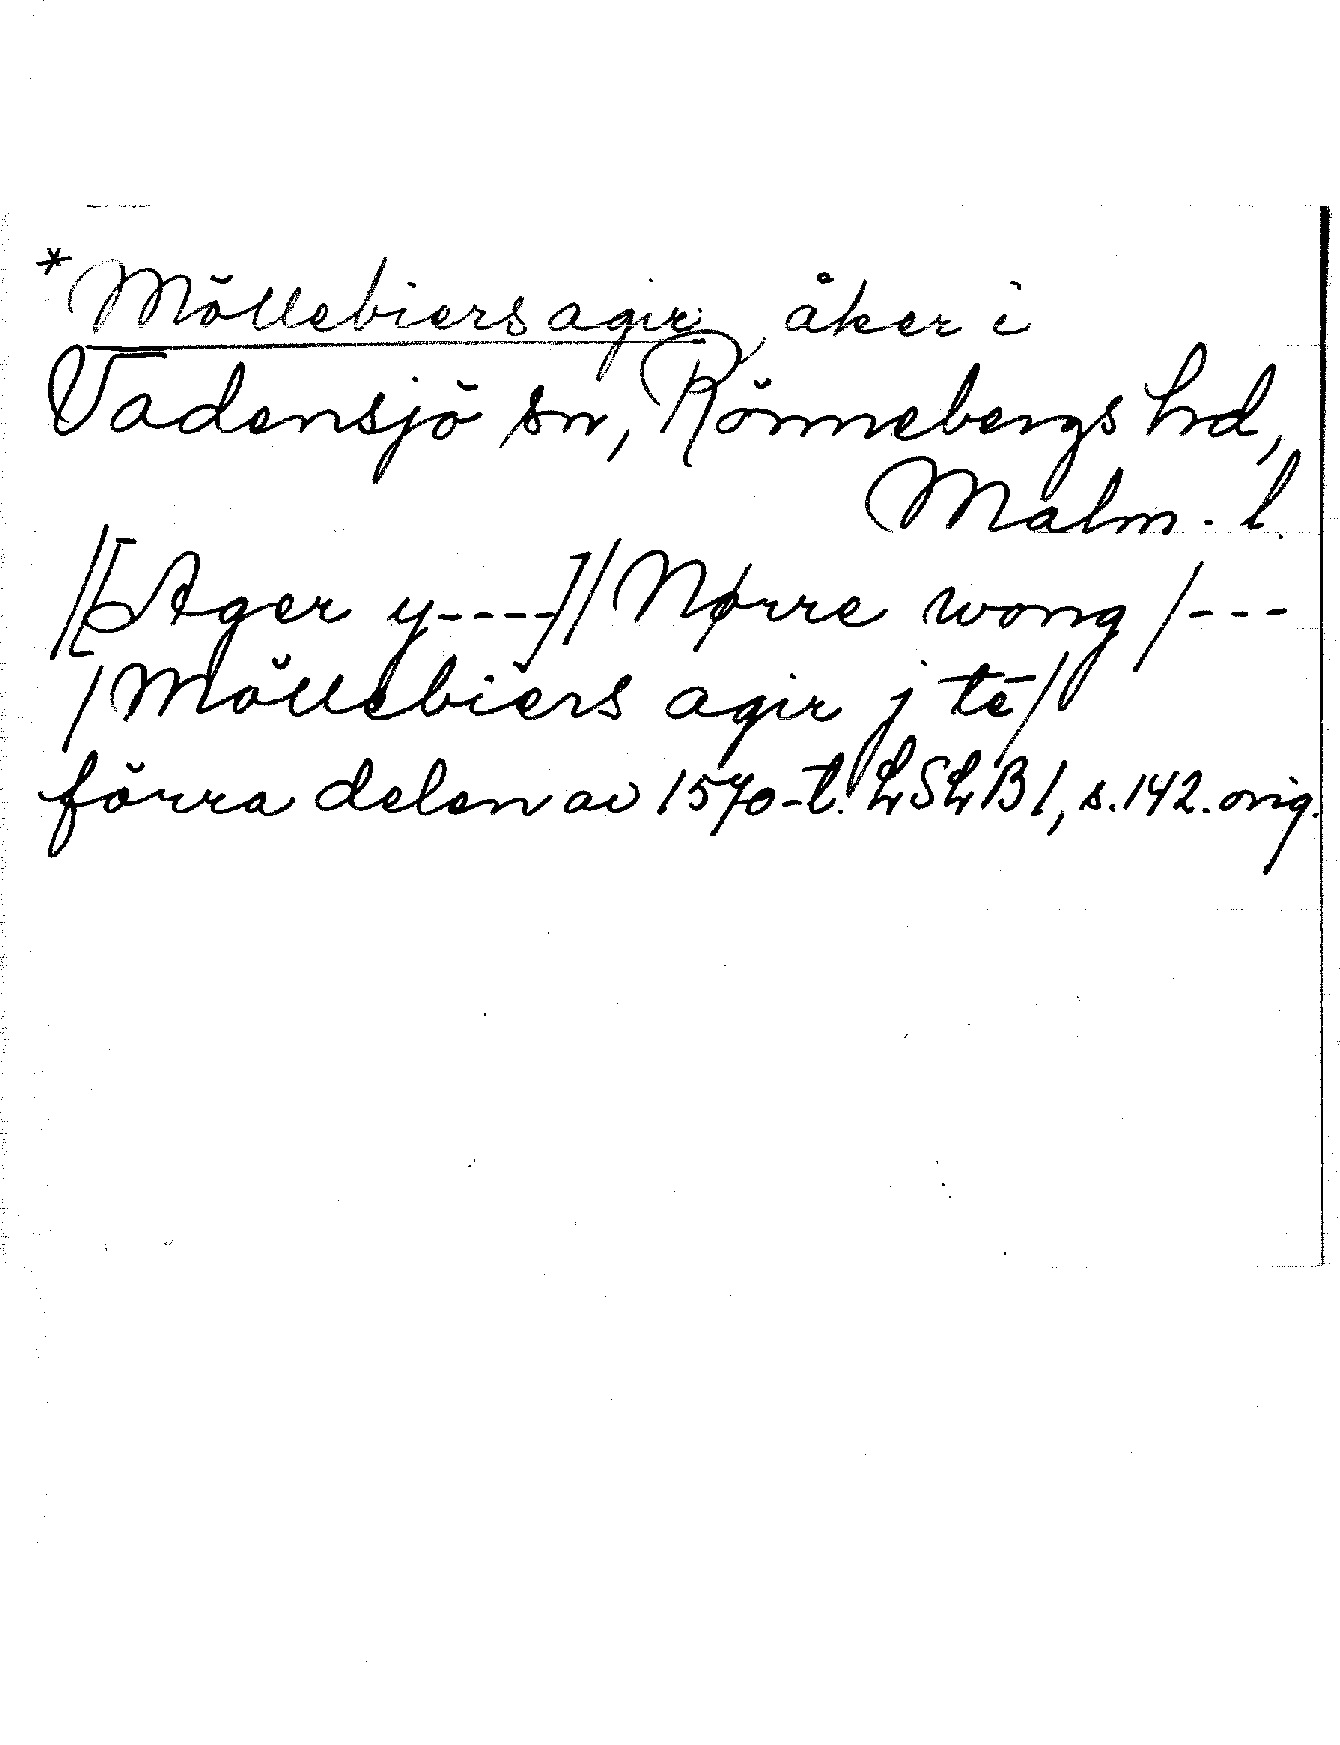 *Möllebiers agir, åker i
Vadensjö sn, Rönnebergs hd,
Malm. l.
/[Ager y----]/Nørre wong/---
/Möllebiers agir j tē/
förra delen av 1570-t. LSLB1, s.142. orig.